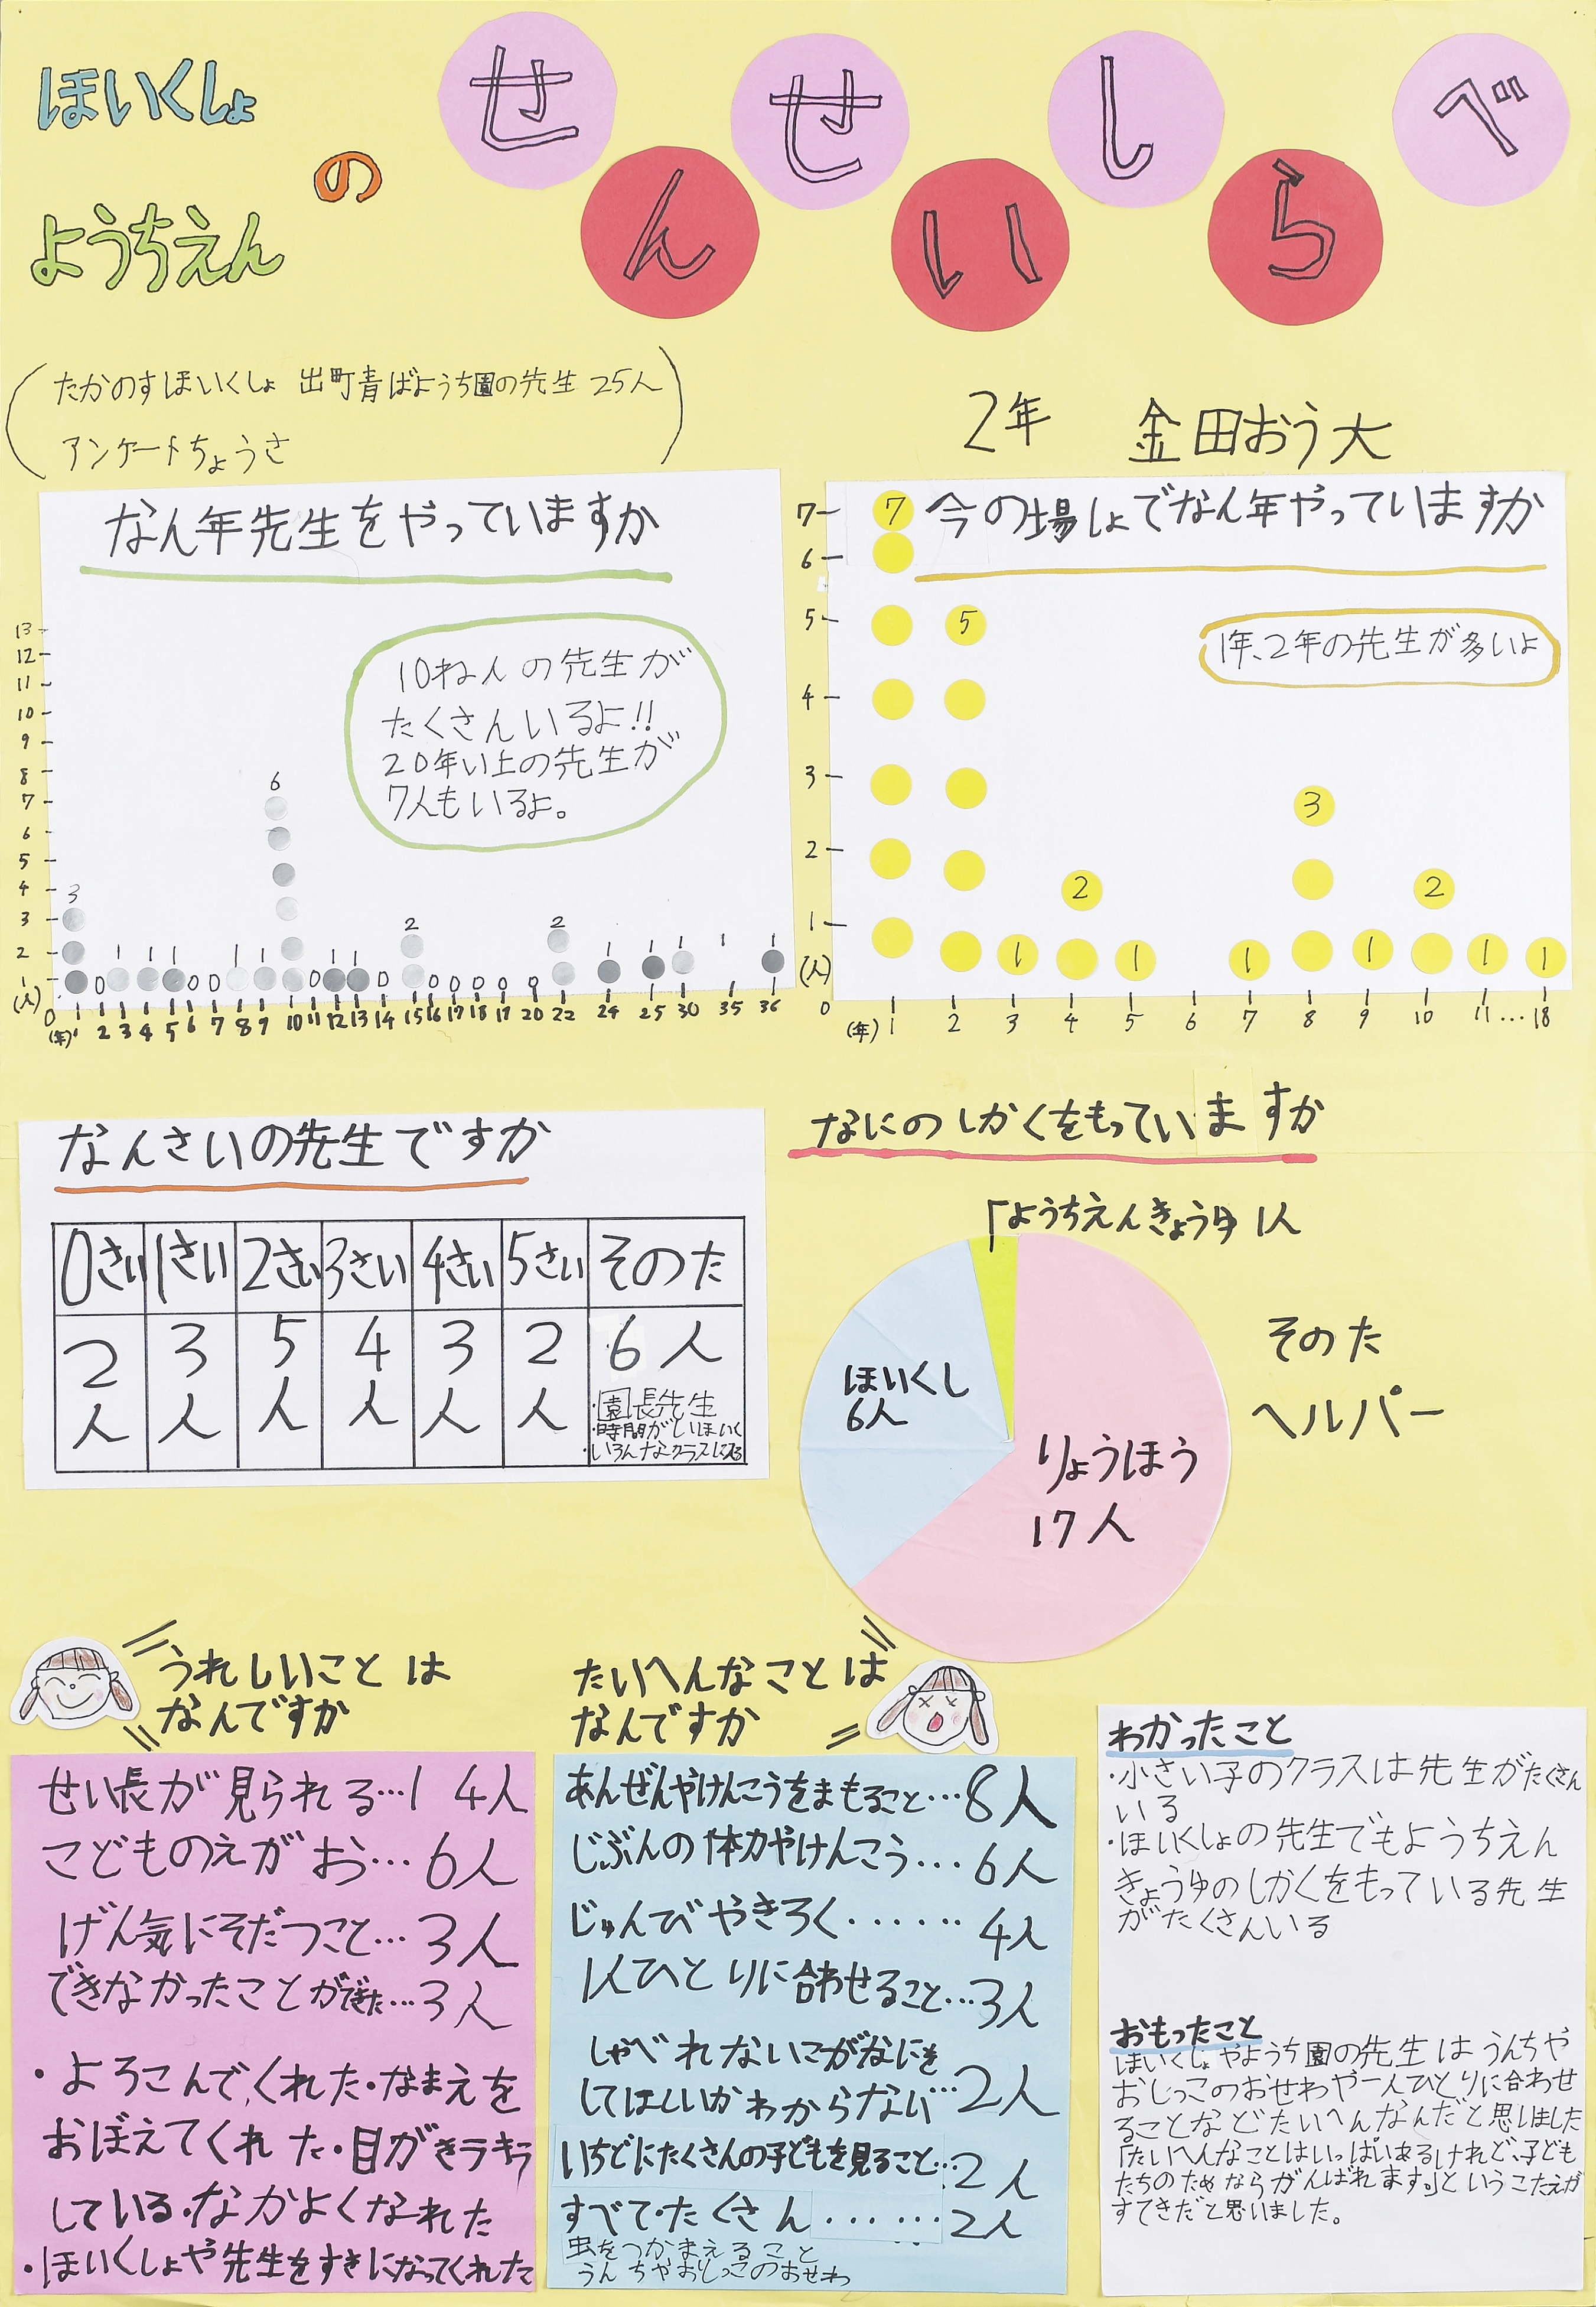 ほいくしょ
の
ようちえん
せんせいしらべ
たかのすほいくしょ 出町青ばようち園の先生 25人
アンケートちょうさ
2年 金田おう大
なん年先生をやっていますか
10ねんの先生が
たくさんいるよ!!
20年い上の先生が
7人もいるよ。
13
12
11
10
9
8
7
6
5
4
3
2
1
(人)
3 0 1 1 1 0 0 1 1 6 0 1 1 0 2 0 0 0 0 0 2 1 1 1 1 1
0 1 2 3 4 5 6 7 8 9 10 11 12 13 14 15 16 17 18 19 20 22 24 25 30 35 36
(年)
今の場しょでなん年やっていますか
1年、2年の先生が多いよ
7
6
5
4
3
2
1
(人)
7 5 1 2 1 1 3 1 2 1 1
0
(年) 1 2 3 4 5 6 7 8 9 10 11…18
なんさいの先生ですか
0さい 1さい 2さい 3さい 4さい 5さい そのた
2人 3人 5人 4人 3人 2人 6人
・園長先生
・時間がいほいく
・いろんなクラスに入る
なにのしかくをもっていますか
「ようちえんきょうゆ 1人
ほいくし
6人
りょうほう
17人
そのた
ヘルパー
うれしいことは
なんですか
せい長が見られる…14人
こどものえがお…6人
げん気にそだつこと…3人
できなかったことができた…3人
・よろこんでくれた・なまえを
おぼえてくれた・目がきラキラ
している・なかよくなれた
・ほいくしょや先生をすきになってくれた
たいへんなことは
なんですか
あんぜんやけんこうをまもること…8人
じぶんの体力やけんこう…6人
じゅんびやきろく……4人
1人ひとりに合わせること…3人
しゃべれないこがなにを
してほしいかわからない…2人
いちどにたくさんの子どもを見ること…2人
すべて・たくさん……2人
虫をつかまえること
うんちやおしっこのおせわ
わかったこと
・小さい子のクラスは先生がたくさん
いる
・ほいくしょの先生でもようちえん
きょうゆのしかくをもっている先生
がたくさんいる
おもったこと
ほいくしょやようち園の先生はうんちや
おしっこのおせわや一人ひとりに合わせ
ることなどたいへんなんだと思いました
「たいへんなことはいっぱいあるけれど、子ども
たちのためならがんばれます。」というこたえが
すてきだと思いました。